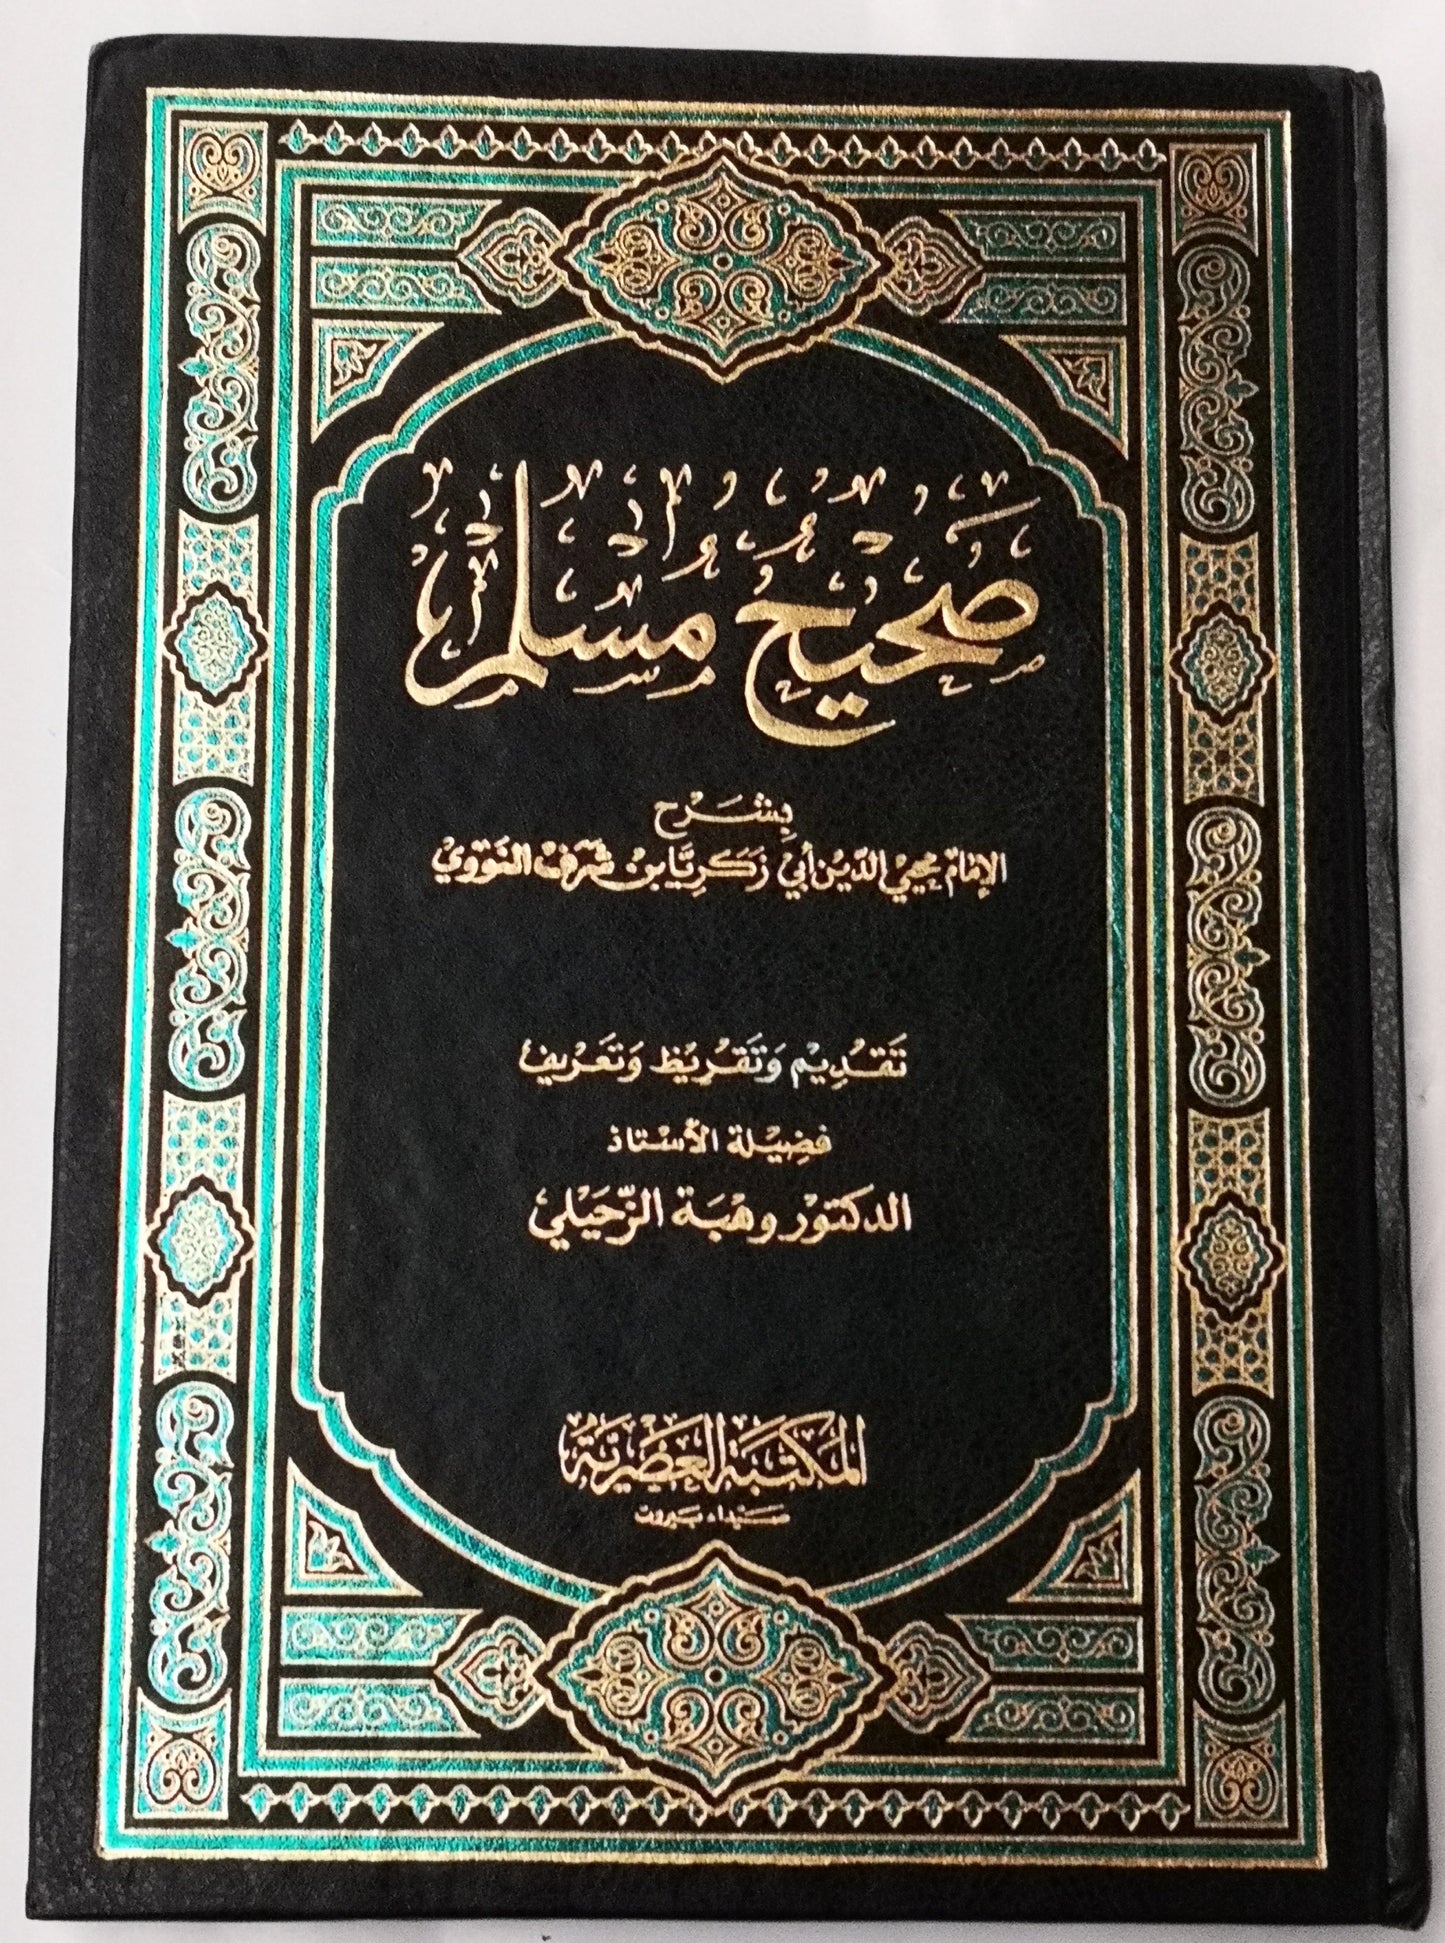 صَحِيحُ مُسْلِم
بِشَرْح
الإمَام محيي الدّين أبي زَكَرِيَّا بن شَرَف النَوَوي
تَقْدِيم وَتَقْرِيظ وَتَعْرِيف
فَضِيلة الأسْتاذ
الدكتور وهْبَة الزّحَيْلي
المكتبة العَصْرِيَّة
صَيْدا - بَيروت